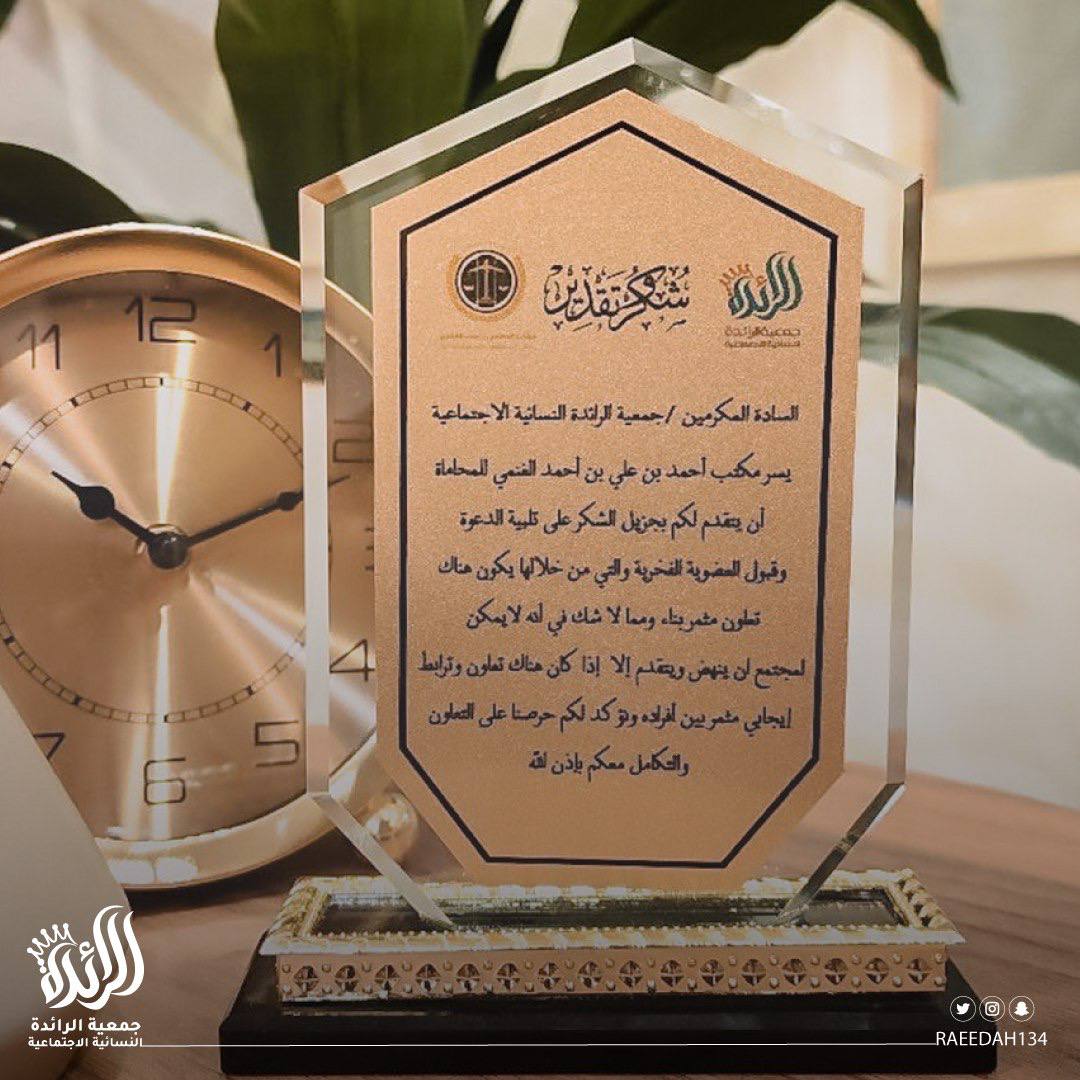 شكر وتقدير
الرائدة
جمعية الرائدة
النسائية الاجتماعية
السادة المكرمين / جمعية الرائدة النسائية الاجتماعية
يسر مكتب أحمد بن علي بن أحمد الغنمي للمحاماة
أن يتقدم لكم بجزيل الشكر على تلبية الدعوة
وقبول العضوية الفخرية والتي من خلالها يكون هناك
تعاون مثمر بناء ومما لا شك في أنه لا يمكن
لمجتمع ان ينهض ويتقدم إلا إذا كان هناك تعاون وترابط
إيجابي مثمر بين أفراده ونؤكد لكم حرصنا على التعاون
والتكامل معكم بإذن الله
11 12 1
2
4
5
6
7
الرائدة
جمعية الرائدة
النسائية الاجتماعية
RAEEDAH134